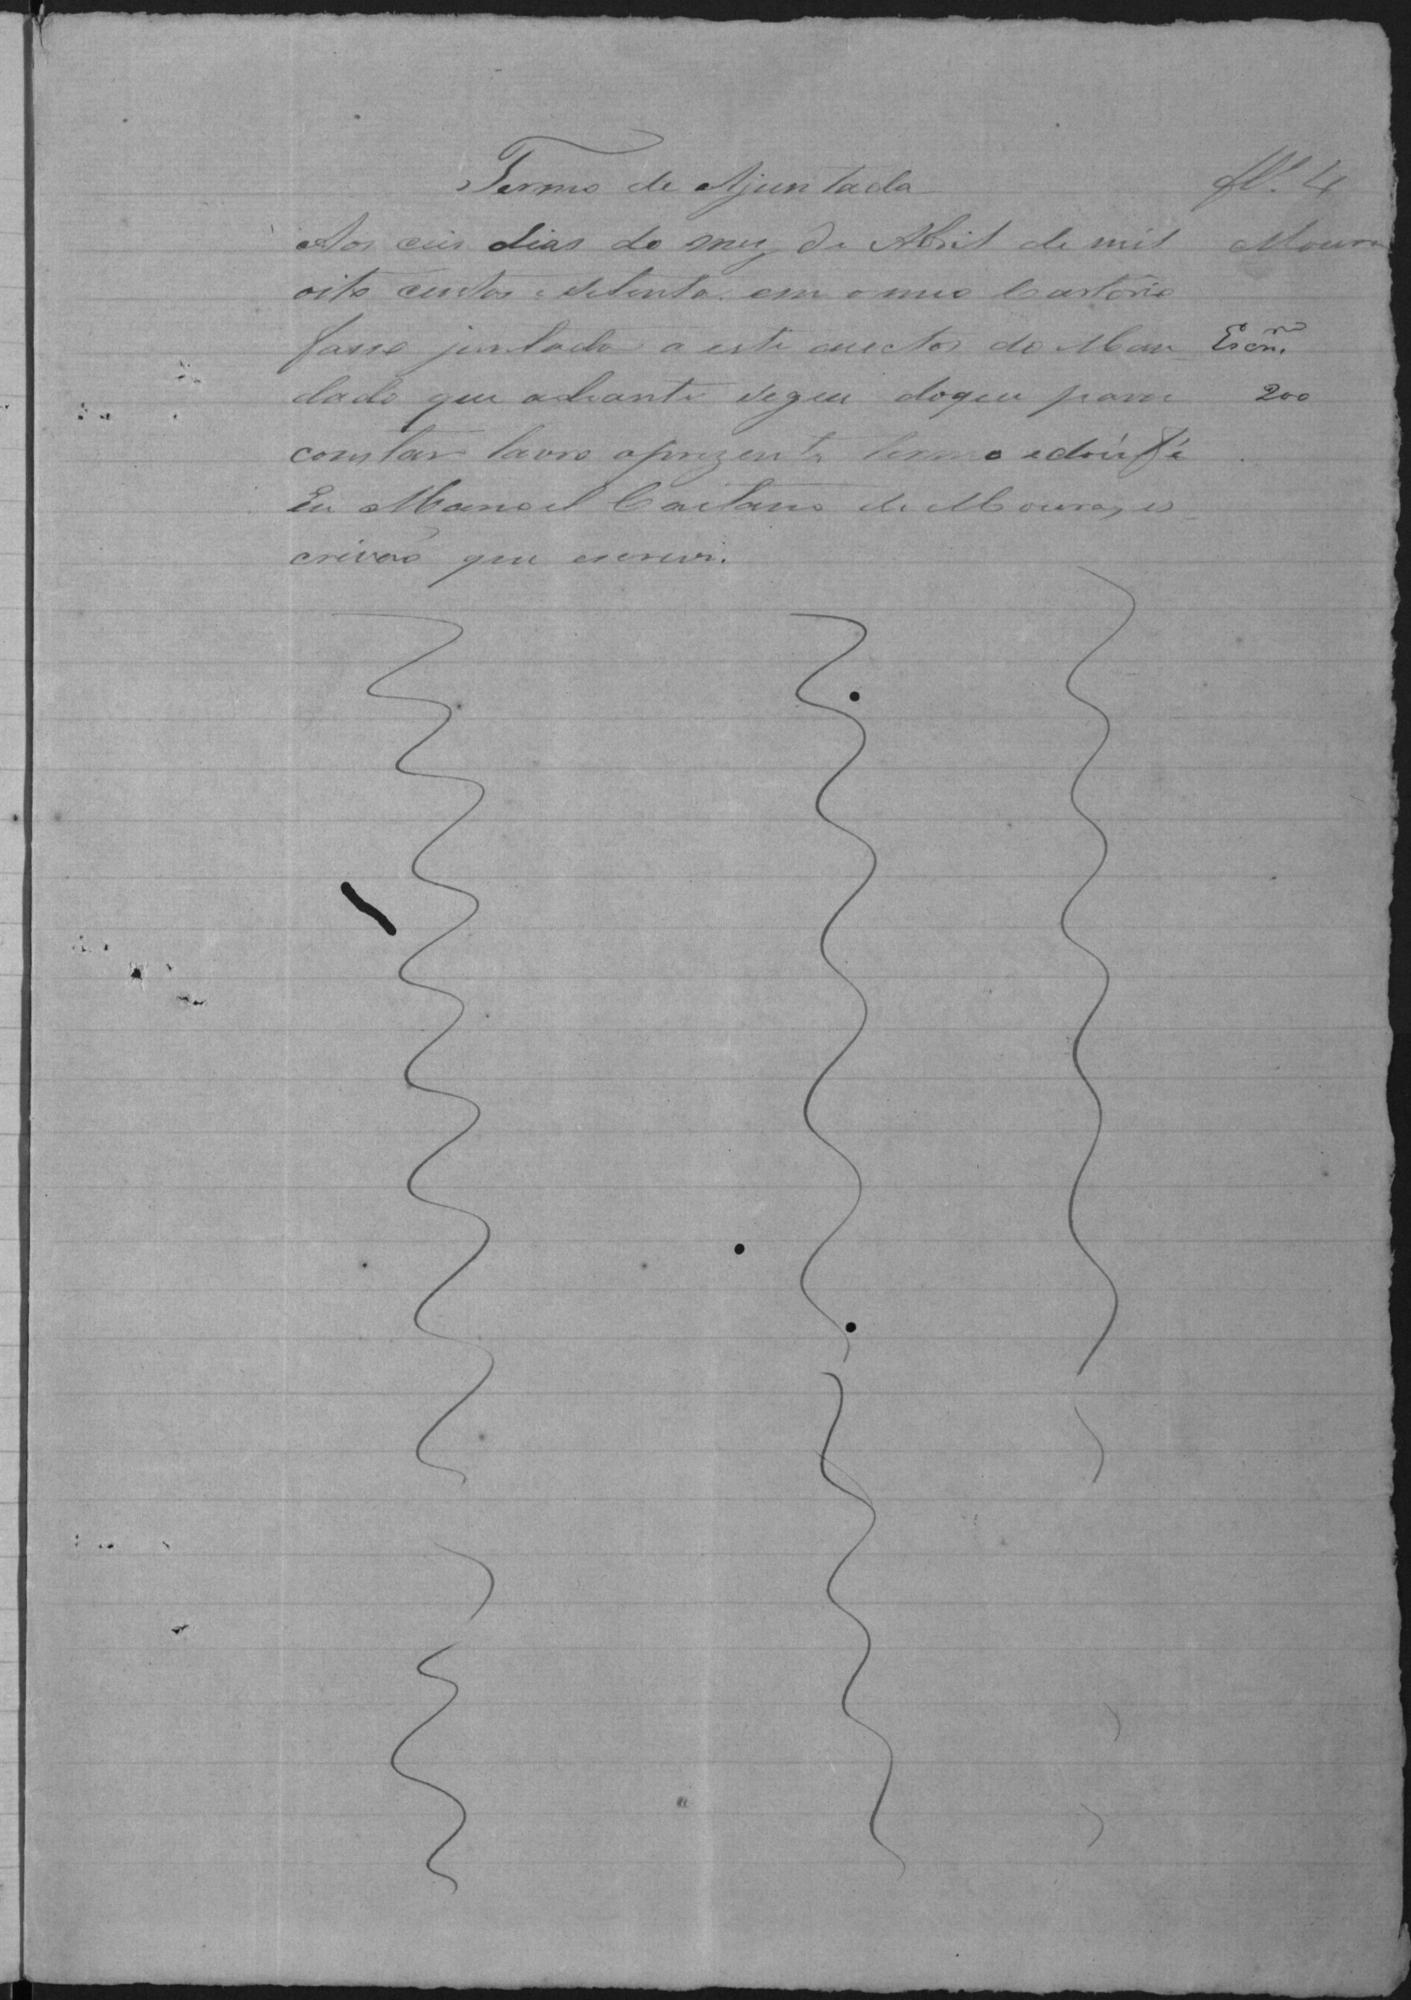 Termo de Ajuntada
fl. 4
Aos ceis dias do mez de Abril de mil
Moura
oito centos e setenta em o meo Cartorio
fasso juntada a este auctos do Man
Escm.
dado que adiante segeu doqeu para
200
constar lavro aprezente termo edou fé
Eu Manoel Caitano de Moura, es
crivão que escrevi.